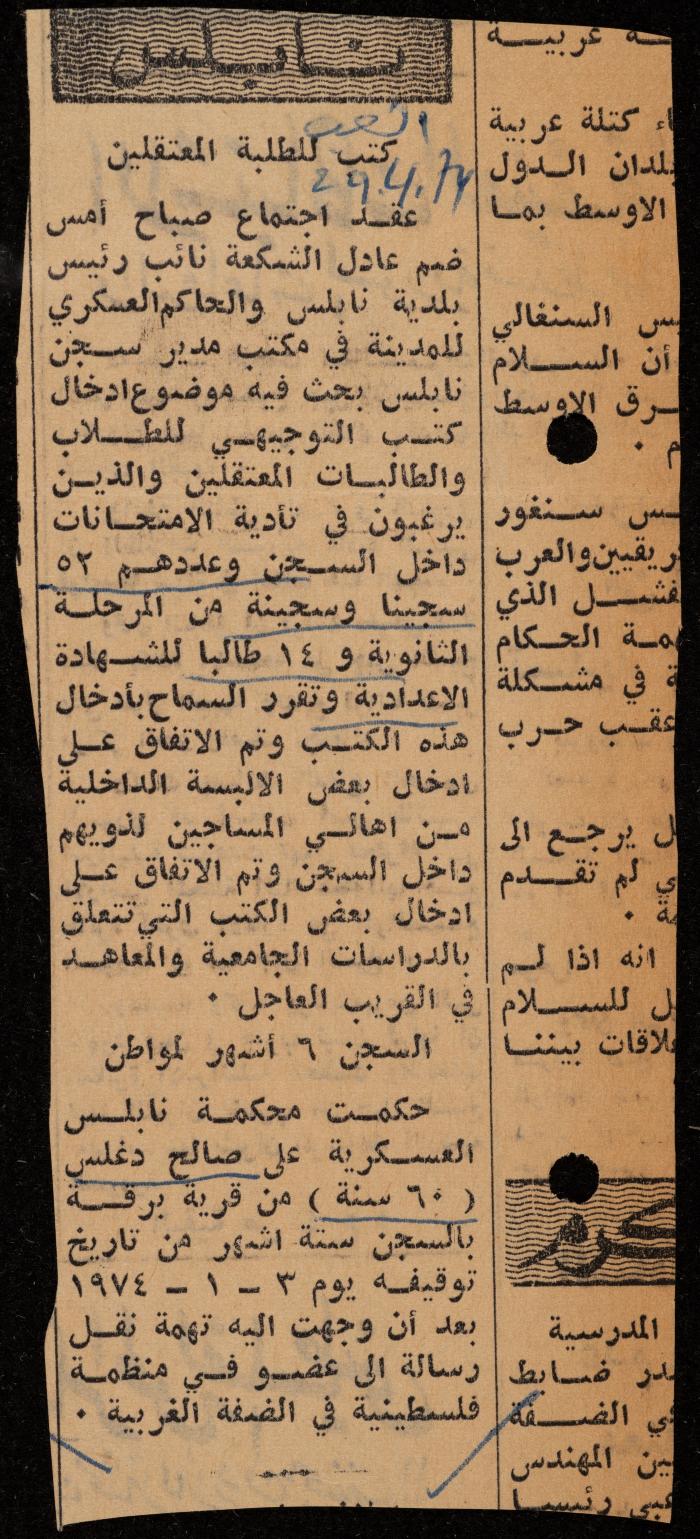 نابلس
الشعب
29.4.74
كتب للطلبة المعتقلين
عقد اجتماع صباح أمس
ضم عادل الشكعة نائب رئيس
بلدية نابلس والحاكم العسكري
للمدينة في مكتب مدير سجن
نابلس بحث فيه موضوع ادخال
كتب التوجيهي للطلاب
والطالبات المعتقلين والذين
يرغبون في تأدية الامتحانات
داخل السجن وعددهم ٥٢
سجينا وسجينة من المرحلة
الثانوية و ١٤ طالبا للشهادة
الاعدادية وتقرر السماح بأدخال
هذه الكتب وتم الاتفاق على
ادخال بعض الالبسة الداخلية
من اهالي المساجين لذويهم
داخل السجن وتم الاتفاق على
ادخال بعض الكتب التي تتعلق
بالدراسات الجامعية والمعاهد
في القريب العاجل ٠
السجن ٦ أشهر لمواطن
حكمت محكمة نابلس
العسكرية على صالح دغلس
( ٦٠ سنة ) من قرية برقة
بالسجن ستة اشهر من تاريخ
توقيفه يوم ٣ - ١ - ١٩٧٤
بعد أن وجهت اليه تهمة نقل
رسالة الى عضو في منظمة
فلسطينية في الضفة الغربية ٠
عربية
كتلة عربية
بلدان الدول
الاوسط بما
السنغالي
أن السلام
الاوسط
م ٠
سنغور
والعرب
الذي
الحكام
في مشكلة
عقب حرب
يرجع الى
لم تقدم
انه اذا لم
للسلام
بيننا
كرم
المدرسية
ضابط
الضفة
المهندس
رئيسا